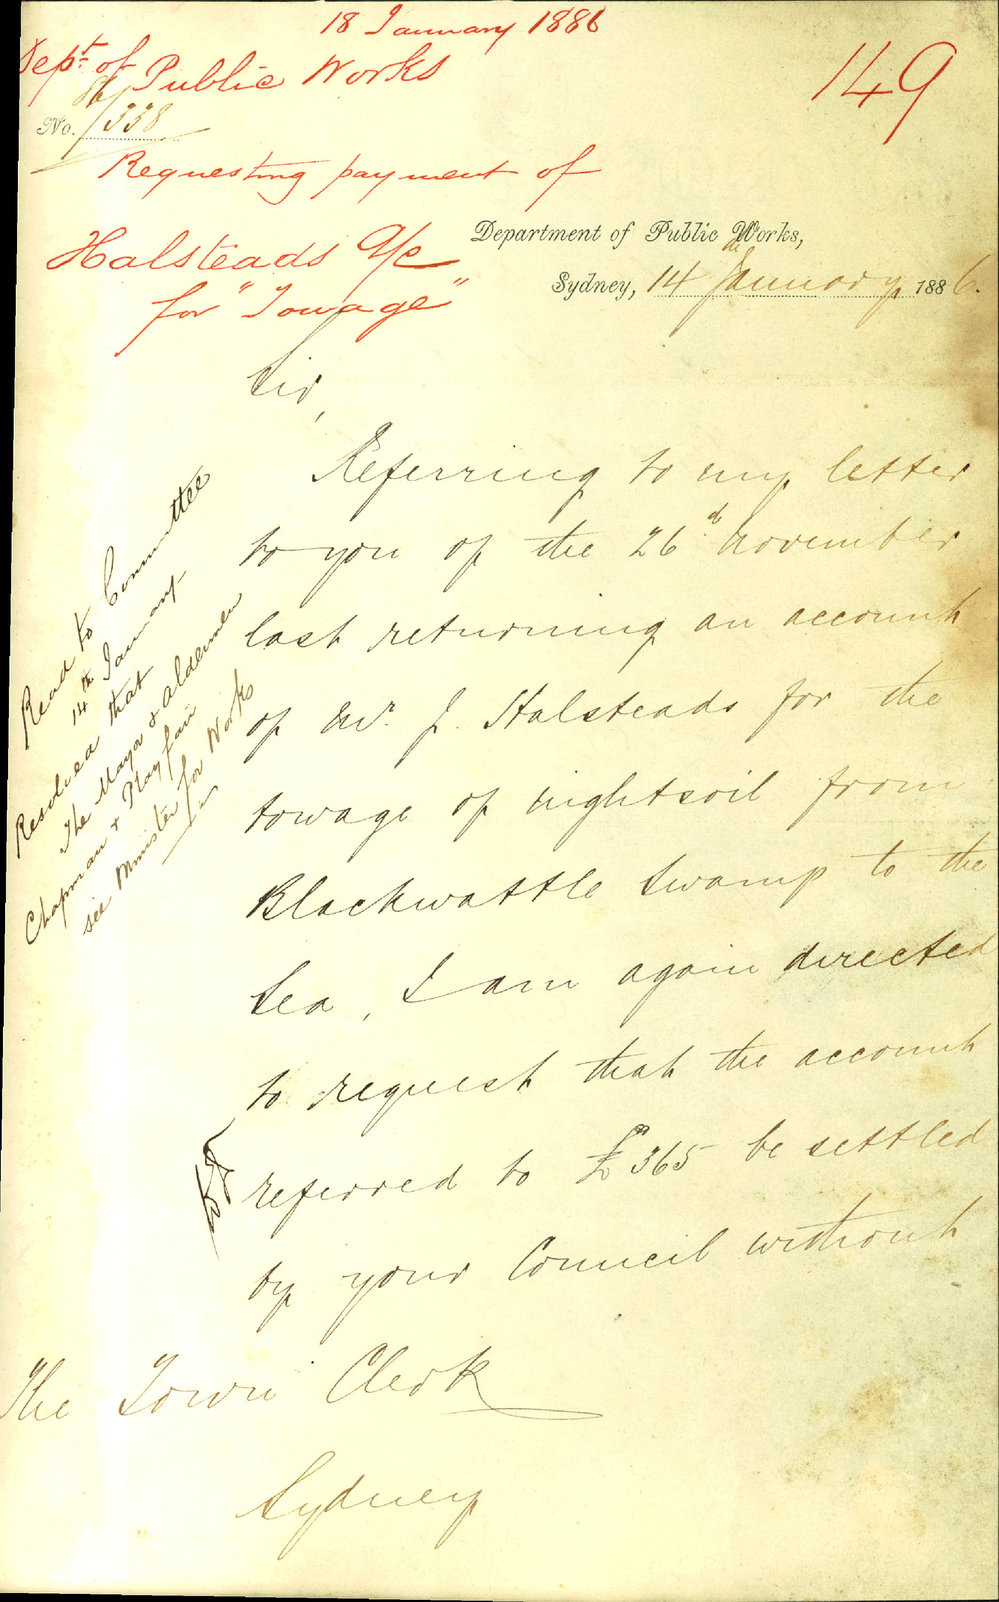 18 January 1886
Dept of Public Works
149
No. 86/338
Requesting payment of
Halsteads a/c
for "Towage"
Department of Public Works,
Sydney, 14 January 1886.
Sir,
Referring to my letter
to you of the 26th November
last returning an account
of Mr. J. Halsteads for the
towage of nightsoil from
Blackwattle Swamp to the
Sea, I am again directed
to request that the account
referred to £365 be settled
by your Council without
The Town Clerk
Sydney
Read to Committee
14th January
Resolved that
The Mayor & aldermen
Chapman & Playfair
see Minister for Works